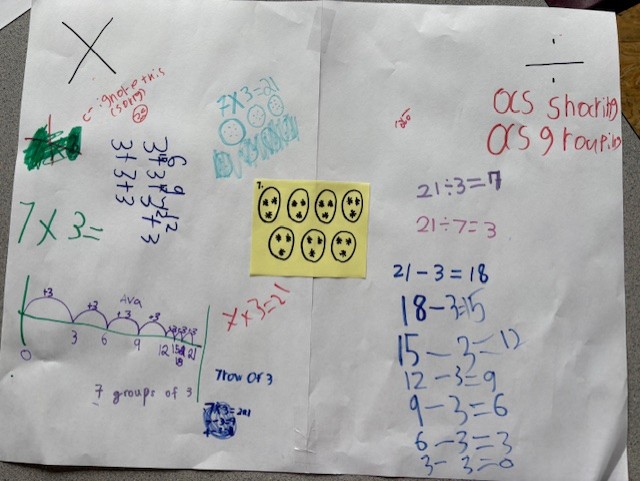 ×
÷
ignore this
(sorry)
7×3=21
3+3+3+3
3+3+3
6 9 12
7×3=
7.
+3 +3 +3 +3 +3 +3 +3
Ava
0 3 6 9 12 15 18 21
7 groups of 3
7×3=21
7 row of 3
as sharing
as grouping
21÷3=7
21÷7=3
21-3=18
18-3=15
15-3=12
12-3=9
9-3=6
6-3=3
3-3=0